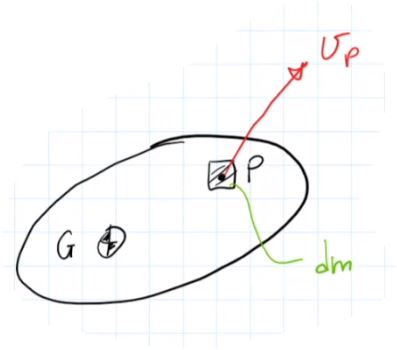 υ_P
P
G
dm